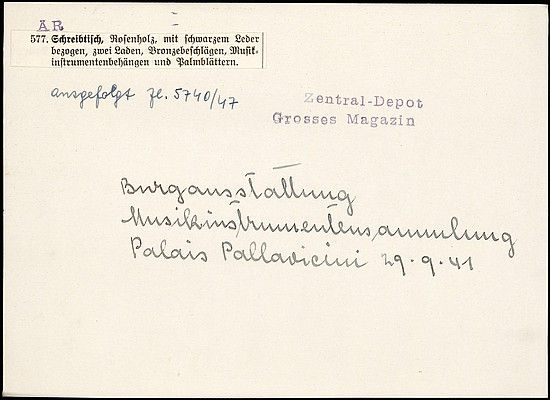 ÄR
577. Schreibtisch, Rosenholz, mit schwarzem Leder
bezogen, zwei Laden, Bronzebeschlägen, Musik-
instrumentenbehängen und Palmblättern.
ausgefolgt Zl. 5740/47
Zentral-Depot
Grosses Magazin
Burgausstattung
Musikinstrumentensammlung
Palais Pallavicini 29.9.41